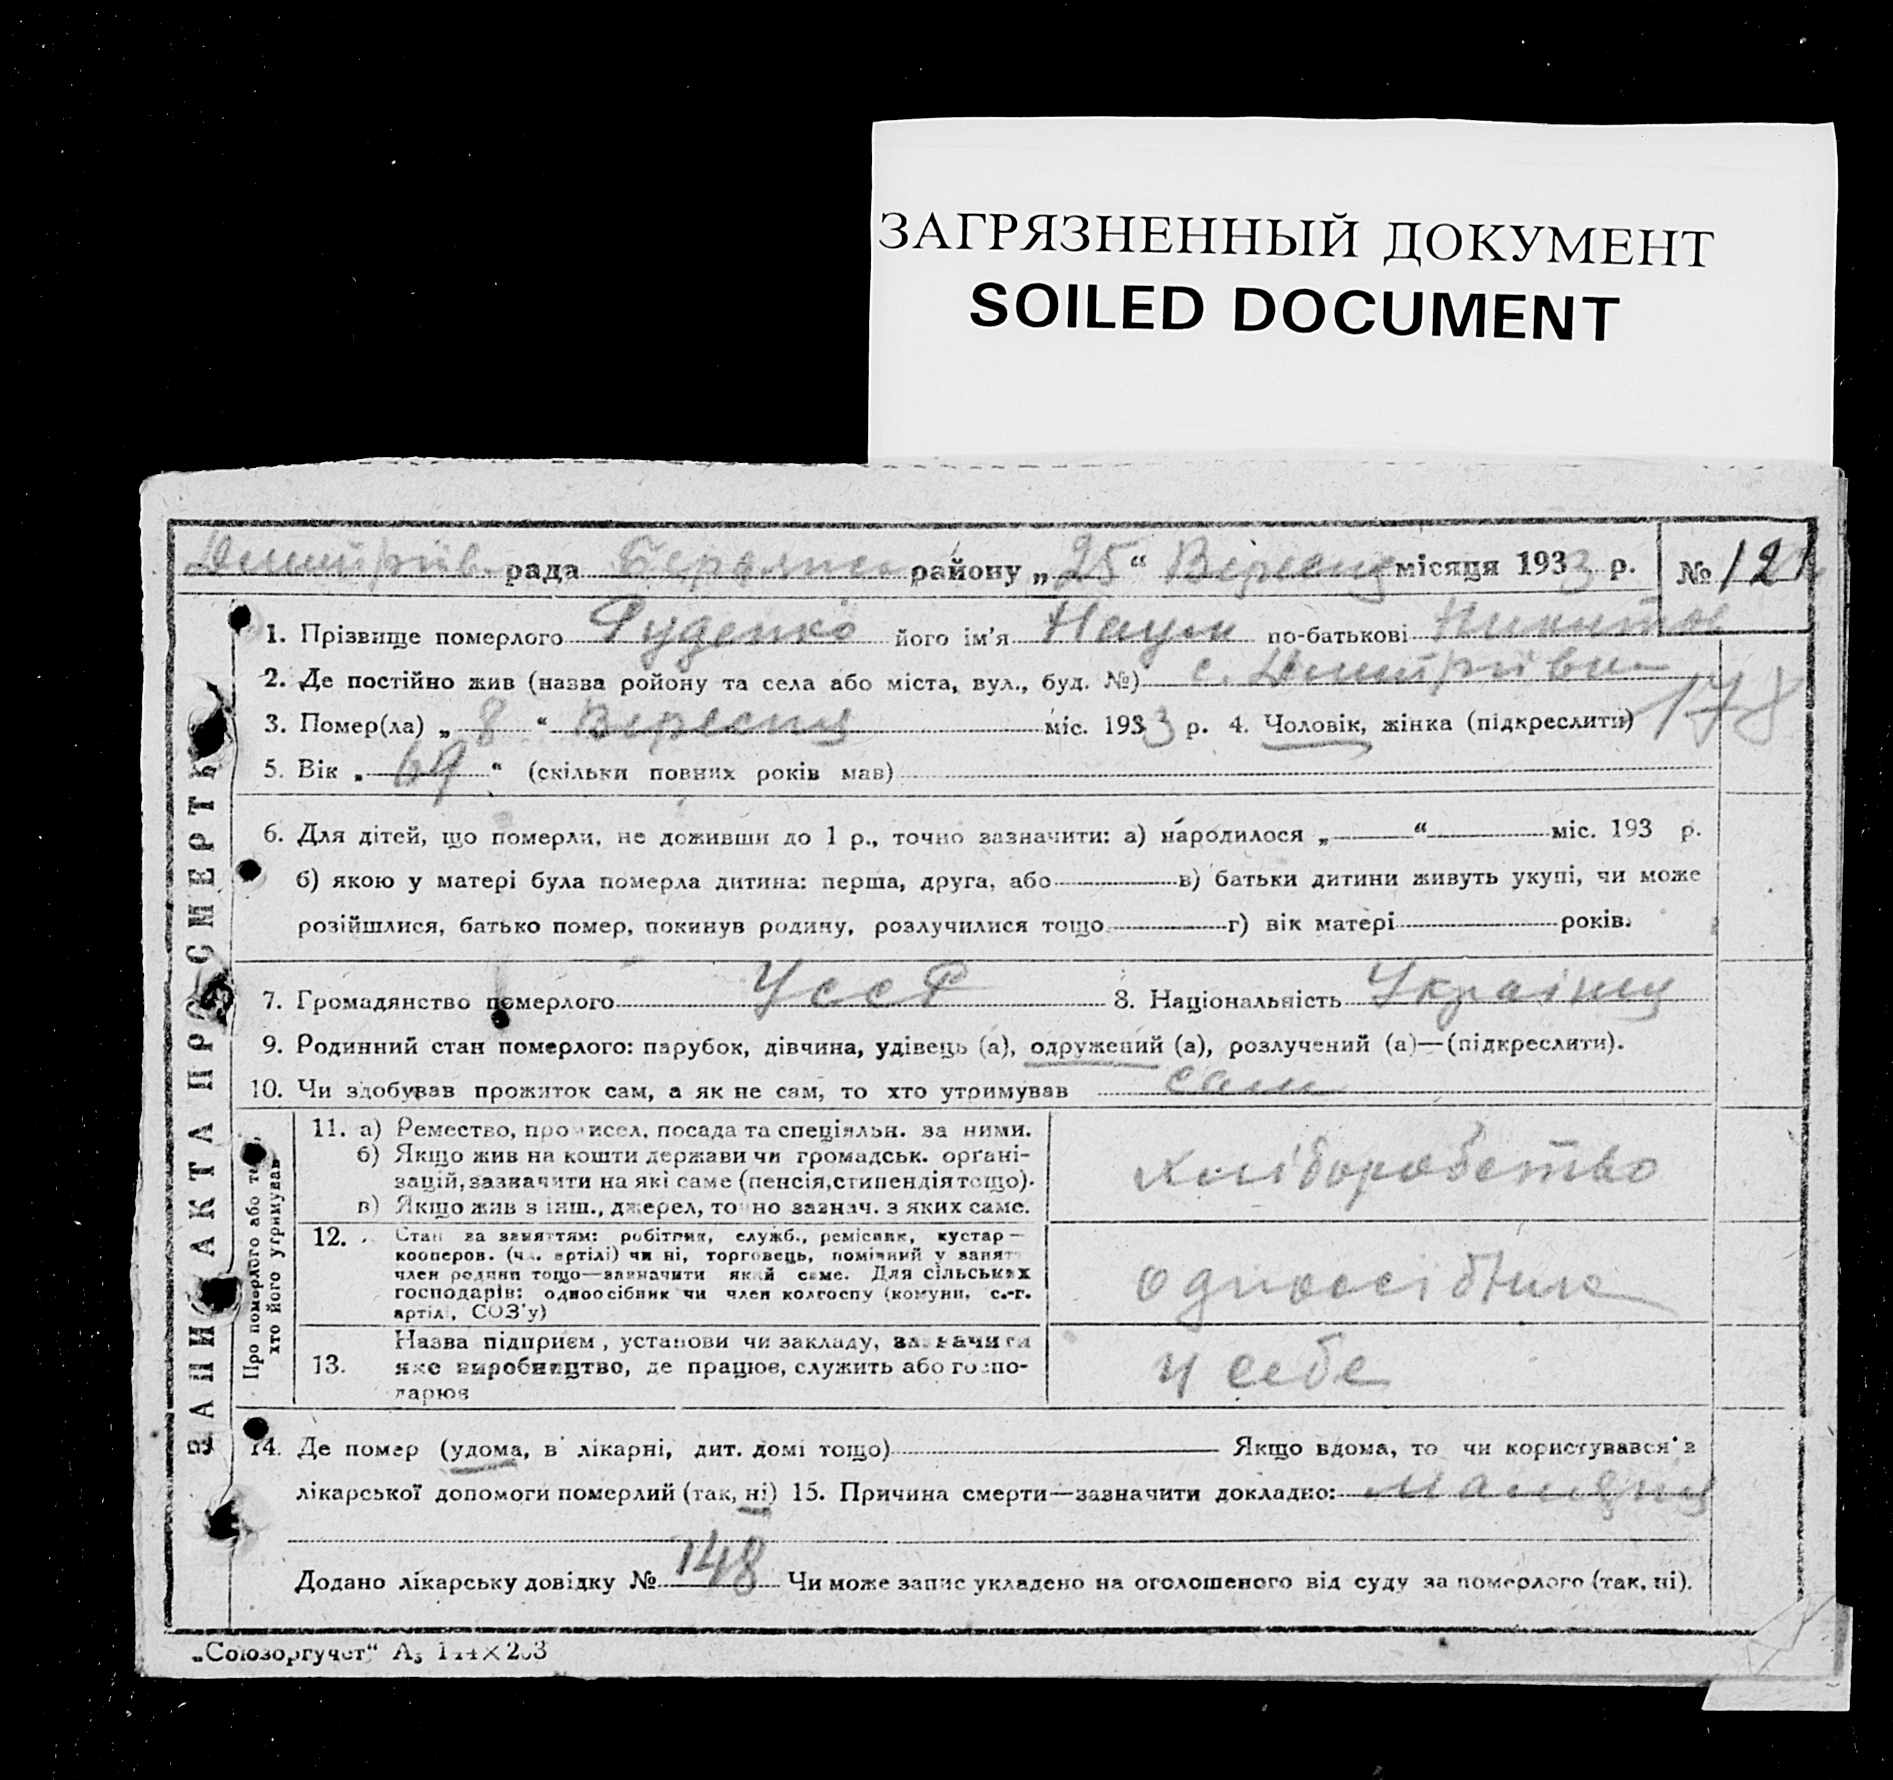 ЗАГРЯЗНЕННЫЙ ДОКУМЕНТ
SOILED DOCUMENT
рада району „25“ Вересня місяця 1933 р. № 121
1. Прізвище померлого Руденко його ім'я Наум по-батькові Никитов
2. Де постійно жив (назва ройону та села або міста, вул., буд. №) с. Дмитрівка
178
3. Помер(ла) „8“ Вересня міс. 1933 р. 4. Чоловік, жінка (підкреслити)
5. Вік „69“ (скільки повних років мав)
6. Для дітей, що померли, не доживши до 1 р., точно зазначити: а) народилося „ “ міс. 193 р.
б) якою у матері була померла дитина: перша, друга, або в) батьки дитини живуть укупі, чи може
розійшлися, батько помер, покинув родину, розлучилися тощо г) вік матері років.
7. Громадянство померлого УССР 8. Національність Українец
9. Родинний стан померлого: парубок, дівчина, удівець (а), одружений (а), розлучений (а)—(підкреслити).
10. Чи здобував прожиток сам, а як не сам, то хто утримував сам
ЗАПИС АКТА ПРО СМЕРТЬ
Про померлого або те, хто його утримував
11. а) Ремество, промисел, посада та спеціяльн. за ними.
б) Якщо жив на кошти держави чи громадськ. органі-
зацій, зазначити на які саме (пенсія, стипендія тощо).
в) Якщо жив з інш., джерел, точно зазнач. з яких саме.
хліборобство
12. Стан за заняттям: робітник, служб., ремісник, кустар—
кооперов. (чл. артілі) чи ні, торговець, помічний у занят.
член родини тощо—зазначити який саме. Для сільських
господарів: одноосібник чи член колгоспу (комуни, с.-г.
артілі, СОЗ'у)
одноосібник
Назва підприєм, установи чи закладу, зазначити
13. яке виробництво, де працює, служить або госпо-
дарює
у себе
14. Де помер (удома, в лікарні, дит. домі тощо) Якщо вдома, то чи користувався з
лікарської допомоги померлий (так, ні) 15. Причина смерти—зазначити докладно:
Додано лікарську довідку № 148 Чи може запис укладено на оголошеного від суду за померлого (так, ні).
„Союзоргучет“